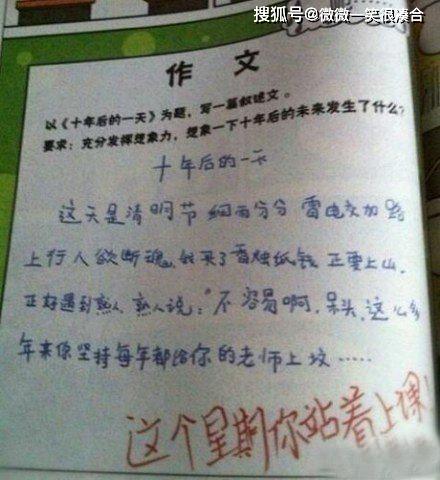 搜狐号@微微一笑很凑合
作 文
以《十年后的一天》为题，写一篇叙述文。
要求：充分发挥想象力，想象一下十年后的未来发生了什么？
十年后的一天
这天是清明节 细雨分分 雷电交加 路
上行人欲断魂，我买了香烛纸钱 正要上山，
正好遇到熟人，熟人说："不容易啊，呆头，这么多
年来你坚持每年都给你的老师上坟……
这个星期你站着上课！